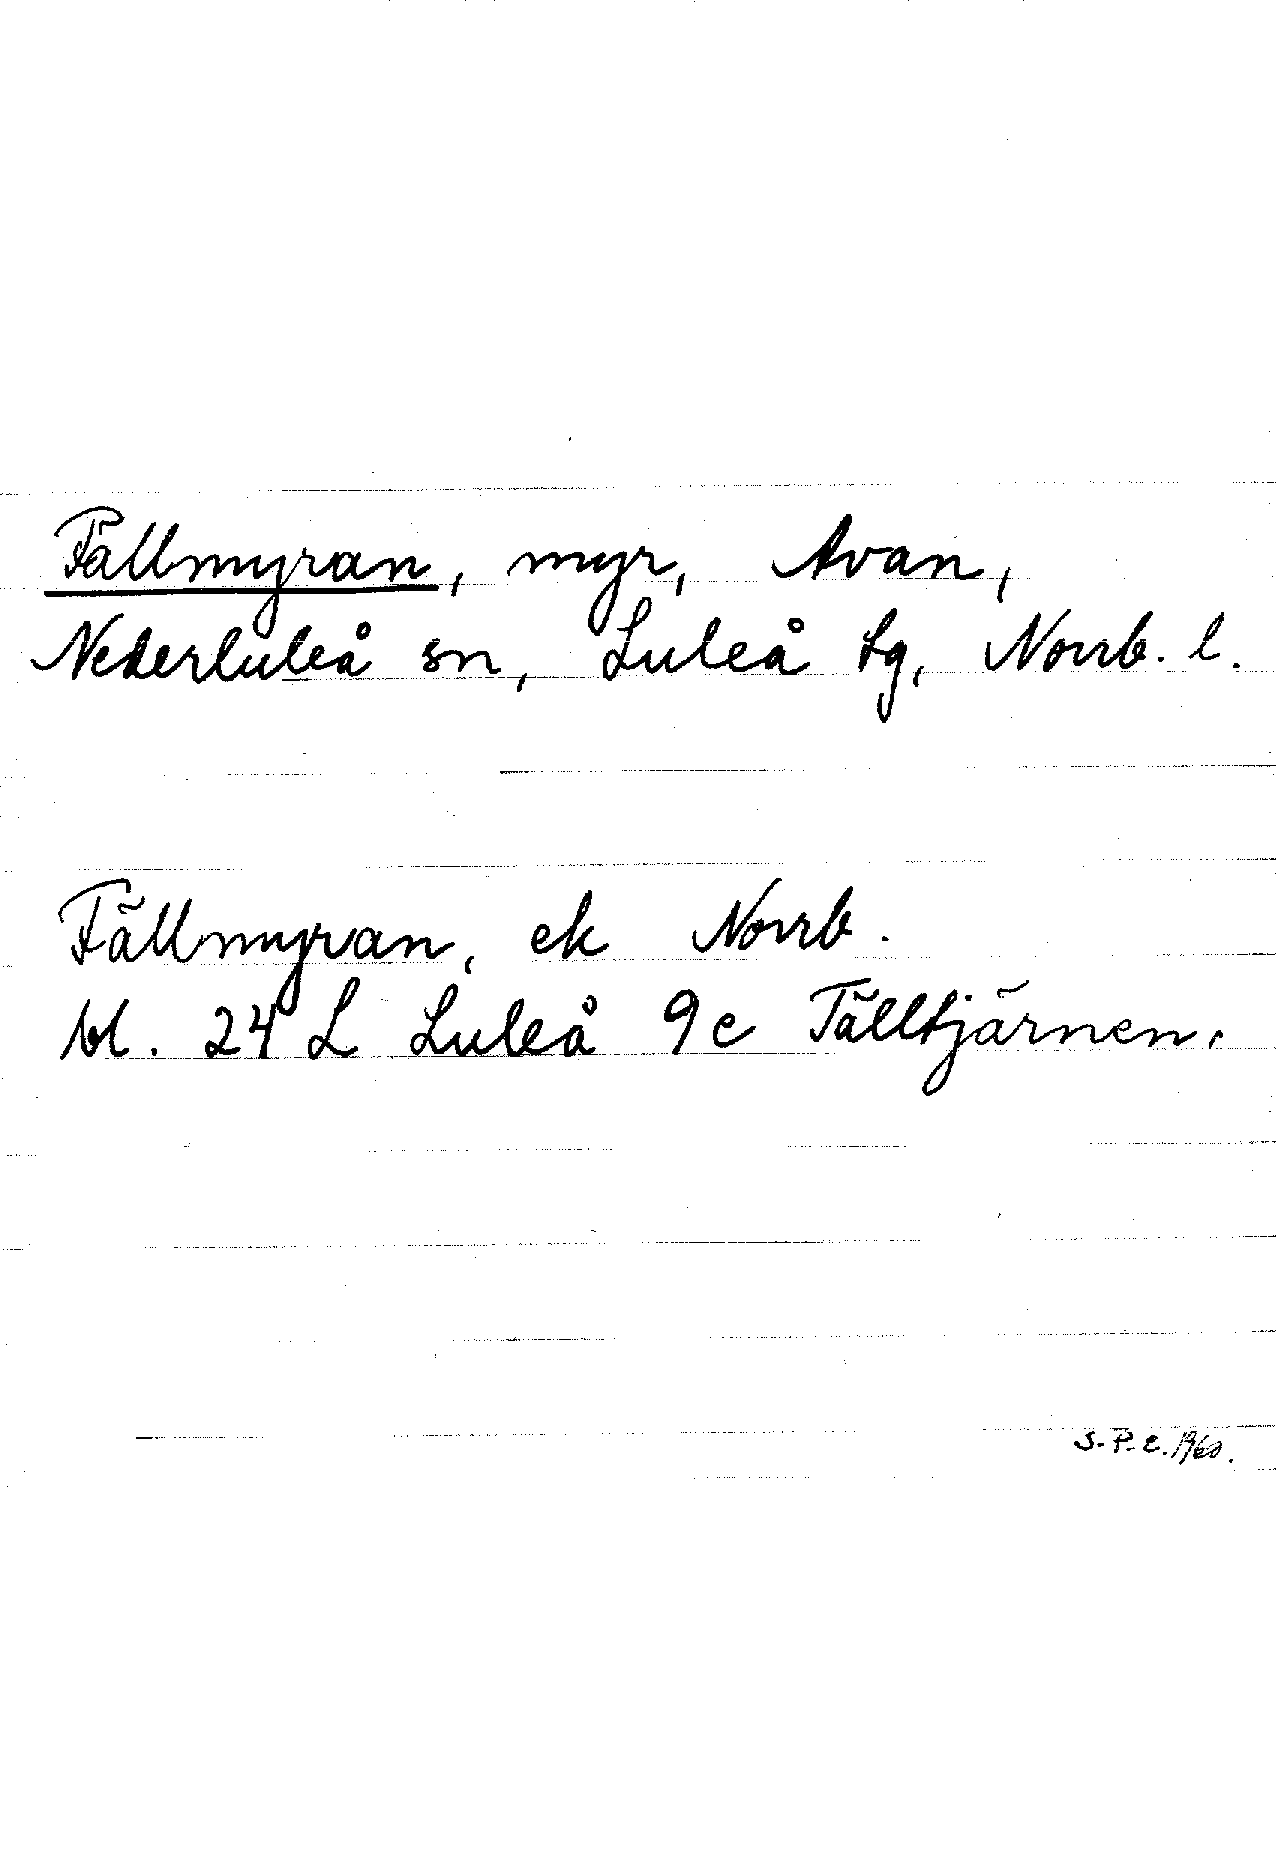 Fällmyran, myr, Avan,
Nederluleå sn, Luleå tg, Norrb. l.
Fällmyran, ek Norrb.
bl. 24 L Luleå 9c Tälltjärnen.
S.P.E. 1960.